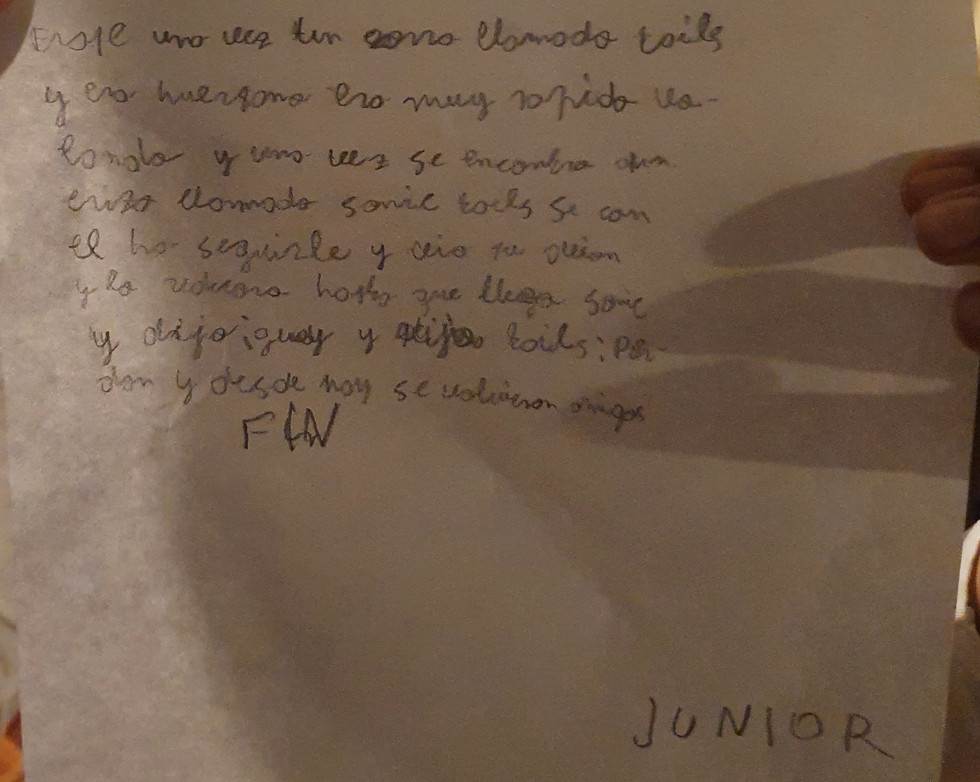 Erase una vez un zorro llamado tails
y era huerfano era muy rapido vo-
lando y una vez se encontro a un
erizo llamado sonic tails se con
el ha seguirle y vio su
y lo hasta que llega sonic
y dijo: guay y dijo tails: per-
don y desde hoy se volvieron amigos
FIN
JUNIOR